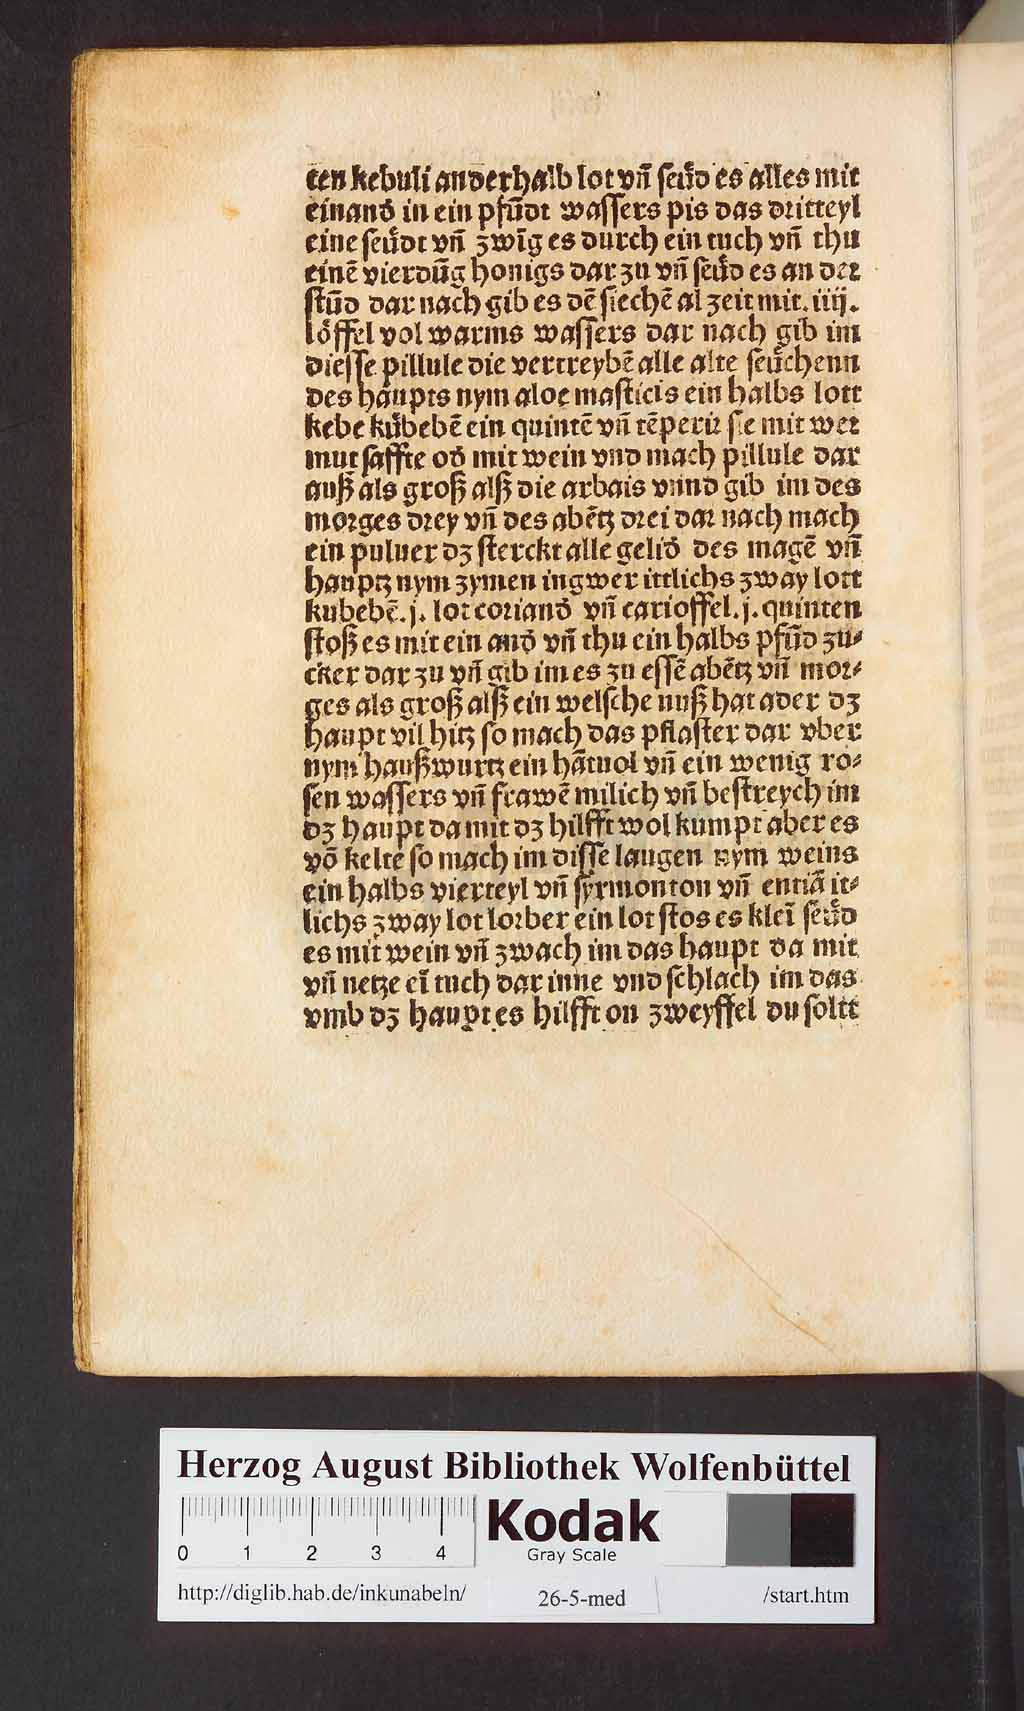 ten kebuli anderhalb lot vñ seüd es alles mit
einand in ein pfūdt wassers pis das dritteyl
eine seüdt vñ zwīg es durch ein tuch vñ thu
einē vierdūg honigs dar zu vñ seüd es an der
stūd dar nach gib es dē siechē al zeit mit. iiij.
löffel vol warms wassers dar nach gib im
diesse pillule die vertreybē alle alte seüchenn
des haupts nym aloe masticis ein halbs lott
kebe kübebē ein quintē vñ tēperir sie mit wer
mut saffte od mit wein vnd mach pillule dar
auß als groß alß die arbais vnnd gib im des
morges drey vñ des abētz drei dar nach mach
ein puluer dz sterckt alle gelid des magē vñ
hauptz nym zymen ingwer ittlichs zway lott
kubebē. j. lot coriand vñ carioffel. j. quinten
stoß es mit ein and vñ thu ein halbs pfūd zu-
cker dar zu vñ gib im es zu essē abētz vñ mor-
ges als groß alß ein welsche nuß hat ader dz
haupt vil hitz so mach das pflaster dar vber
nym haußwurtz ein hātuol vñ ein wenig ro-
sen wassers vñ frawē milich vñ bestreych im
dz haupt da mit dz hilfft wol kumpt aber es
vō kelte so mach im disse laugen nym weins
ein halbs vierteyl vñ syrmonton vñ entiā it-
lichs zway lot lorber ein lot stos es kleī seüd
es mit wein vñ zwach im das haupt da mit
vñ netze eī tuch dar inne vnd schlach im das
vmb dz haupt es hilfft on zweyffel du soltt
Herzog August Bibliothek Wolfenbüttel
Kodak
Gray Scale
0 1 2 3 4
http://diglib.hab.de/inkunabeln/ 26-5-med /start.htm